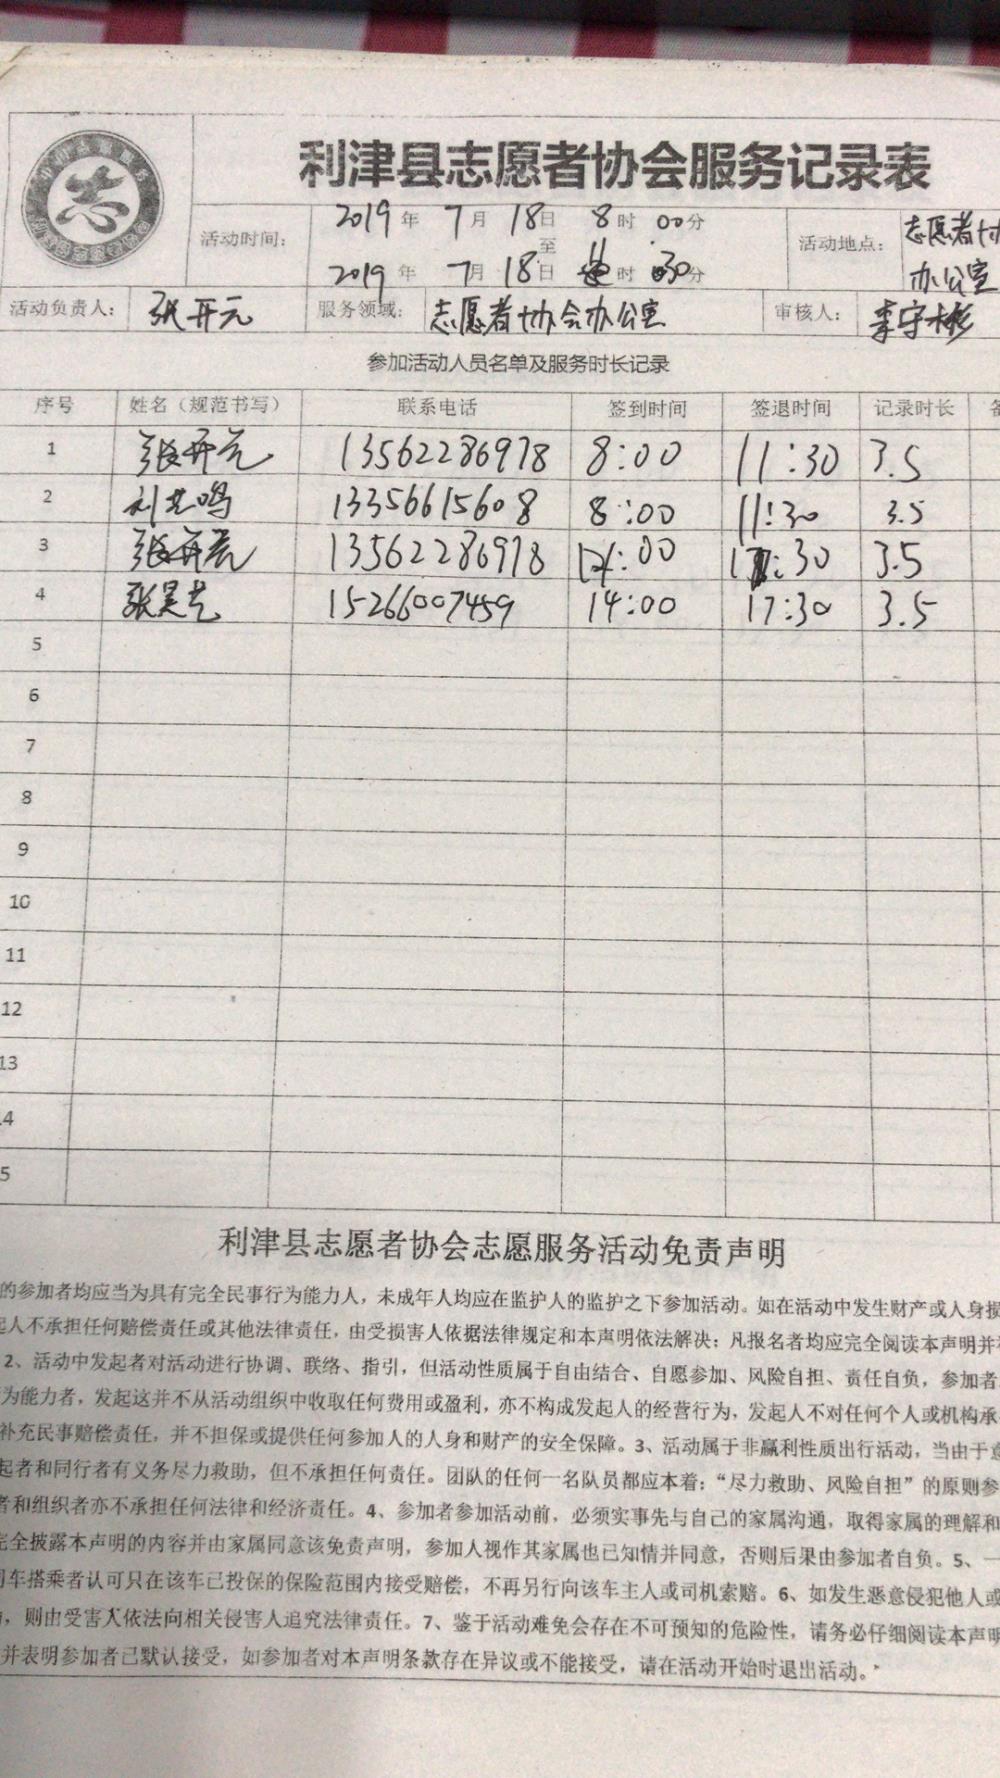 志
利津县志愿者协会服务记录表
活动时间： 2019年 7月 18日 8时 00分
至
2019年 7月 18日 时 30分
活动地点： 志愿者协
办公室
活动负责人： 张开元 服务领域： 志愿者协会办公室 审核人： 李守彬
参加活动人员名单及服务时长记录
序号 姓名（规范书写） 联系电话 签到时间 签退时间 记录时长 备
1 张开元 13562286978 8:00 11:30 3.5
2 刘 鸣 13356615608 8:00 11:30 3.5
3 张开元 13562286978 14:00 17:30 3.5
4 张昊 15266007459 14:00 17:30 3.5
5
6
7
8
9
10
11
12
13
4
5
利津县志愿者协会志愿服务活动免责声明
的参加者均应当为具有完全民事行为能力人，未成年人均应在监护人的监护之下参加活动。如在活动中发生财产或人身损
起人不承担任何赔偿责任或其他法律责任，由受损害人依据法律规定和本声明依法解决；凡报名者均应完全阅读本声明并
2、活动中发起者对活动进行协调、联络、指引，但活动性质属于自由结合、自愿参加、风险自担、责任自负，参加者
为能力者，发起这并不从活动组织中收取任何费用或盈利，亦不构成发起人的经营行为，发起人不对任何个人或机构承
补充民事赔偿责任，并不担保或提供任何参加人的人身和财产的安全保障。3、活动属于非赢利性质出行活动，当由于意
起者和同行者有义务尽力救助，但不承担任何责任。团队的任何一名队员都应本着：“尽力救助、风险自担”的原则参
者和组织者亦不承担任何法律和经济责任。4、参加者参加活动前，必须实事先与自己的家属沟通，取得家属的理解和
完全披露本声明的内容并由家属同意该免责声明，参加人视作其家属也已知情并同意，否则后果由参加者自负。5、一
司车搭乘者认可只在该车已投保的保险范围内接受赔偿，不再另行向该车主人或司机索赔。6、如发生恶意侵犯他人或
，则由受害人依法向相关侵害人追究法律责任。7、鉴于活动难免会存在不可预知的危险性，请务必仔细阅读本声明
并表明参加者已默认接受，如参加者对本声明条款存在异议或不能接受，请在活动开始时退出活动。